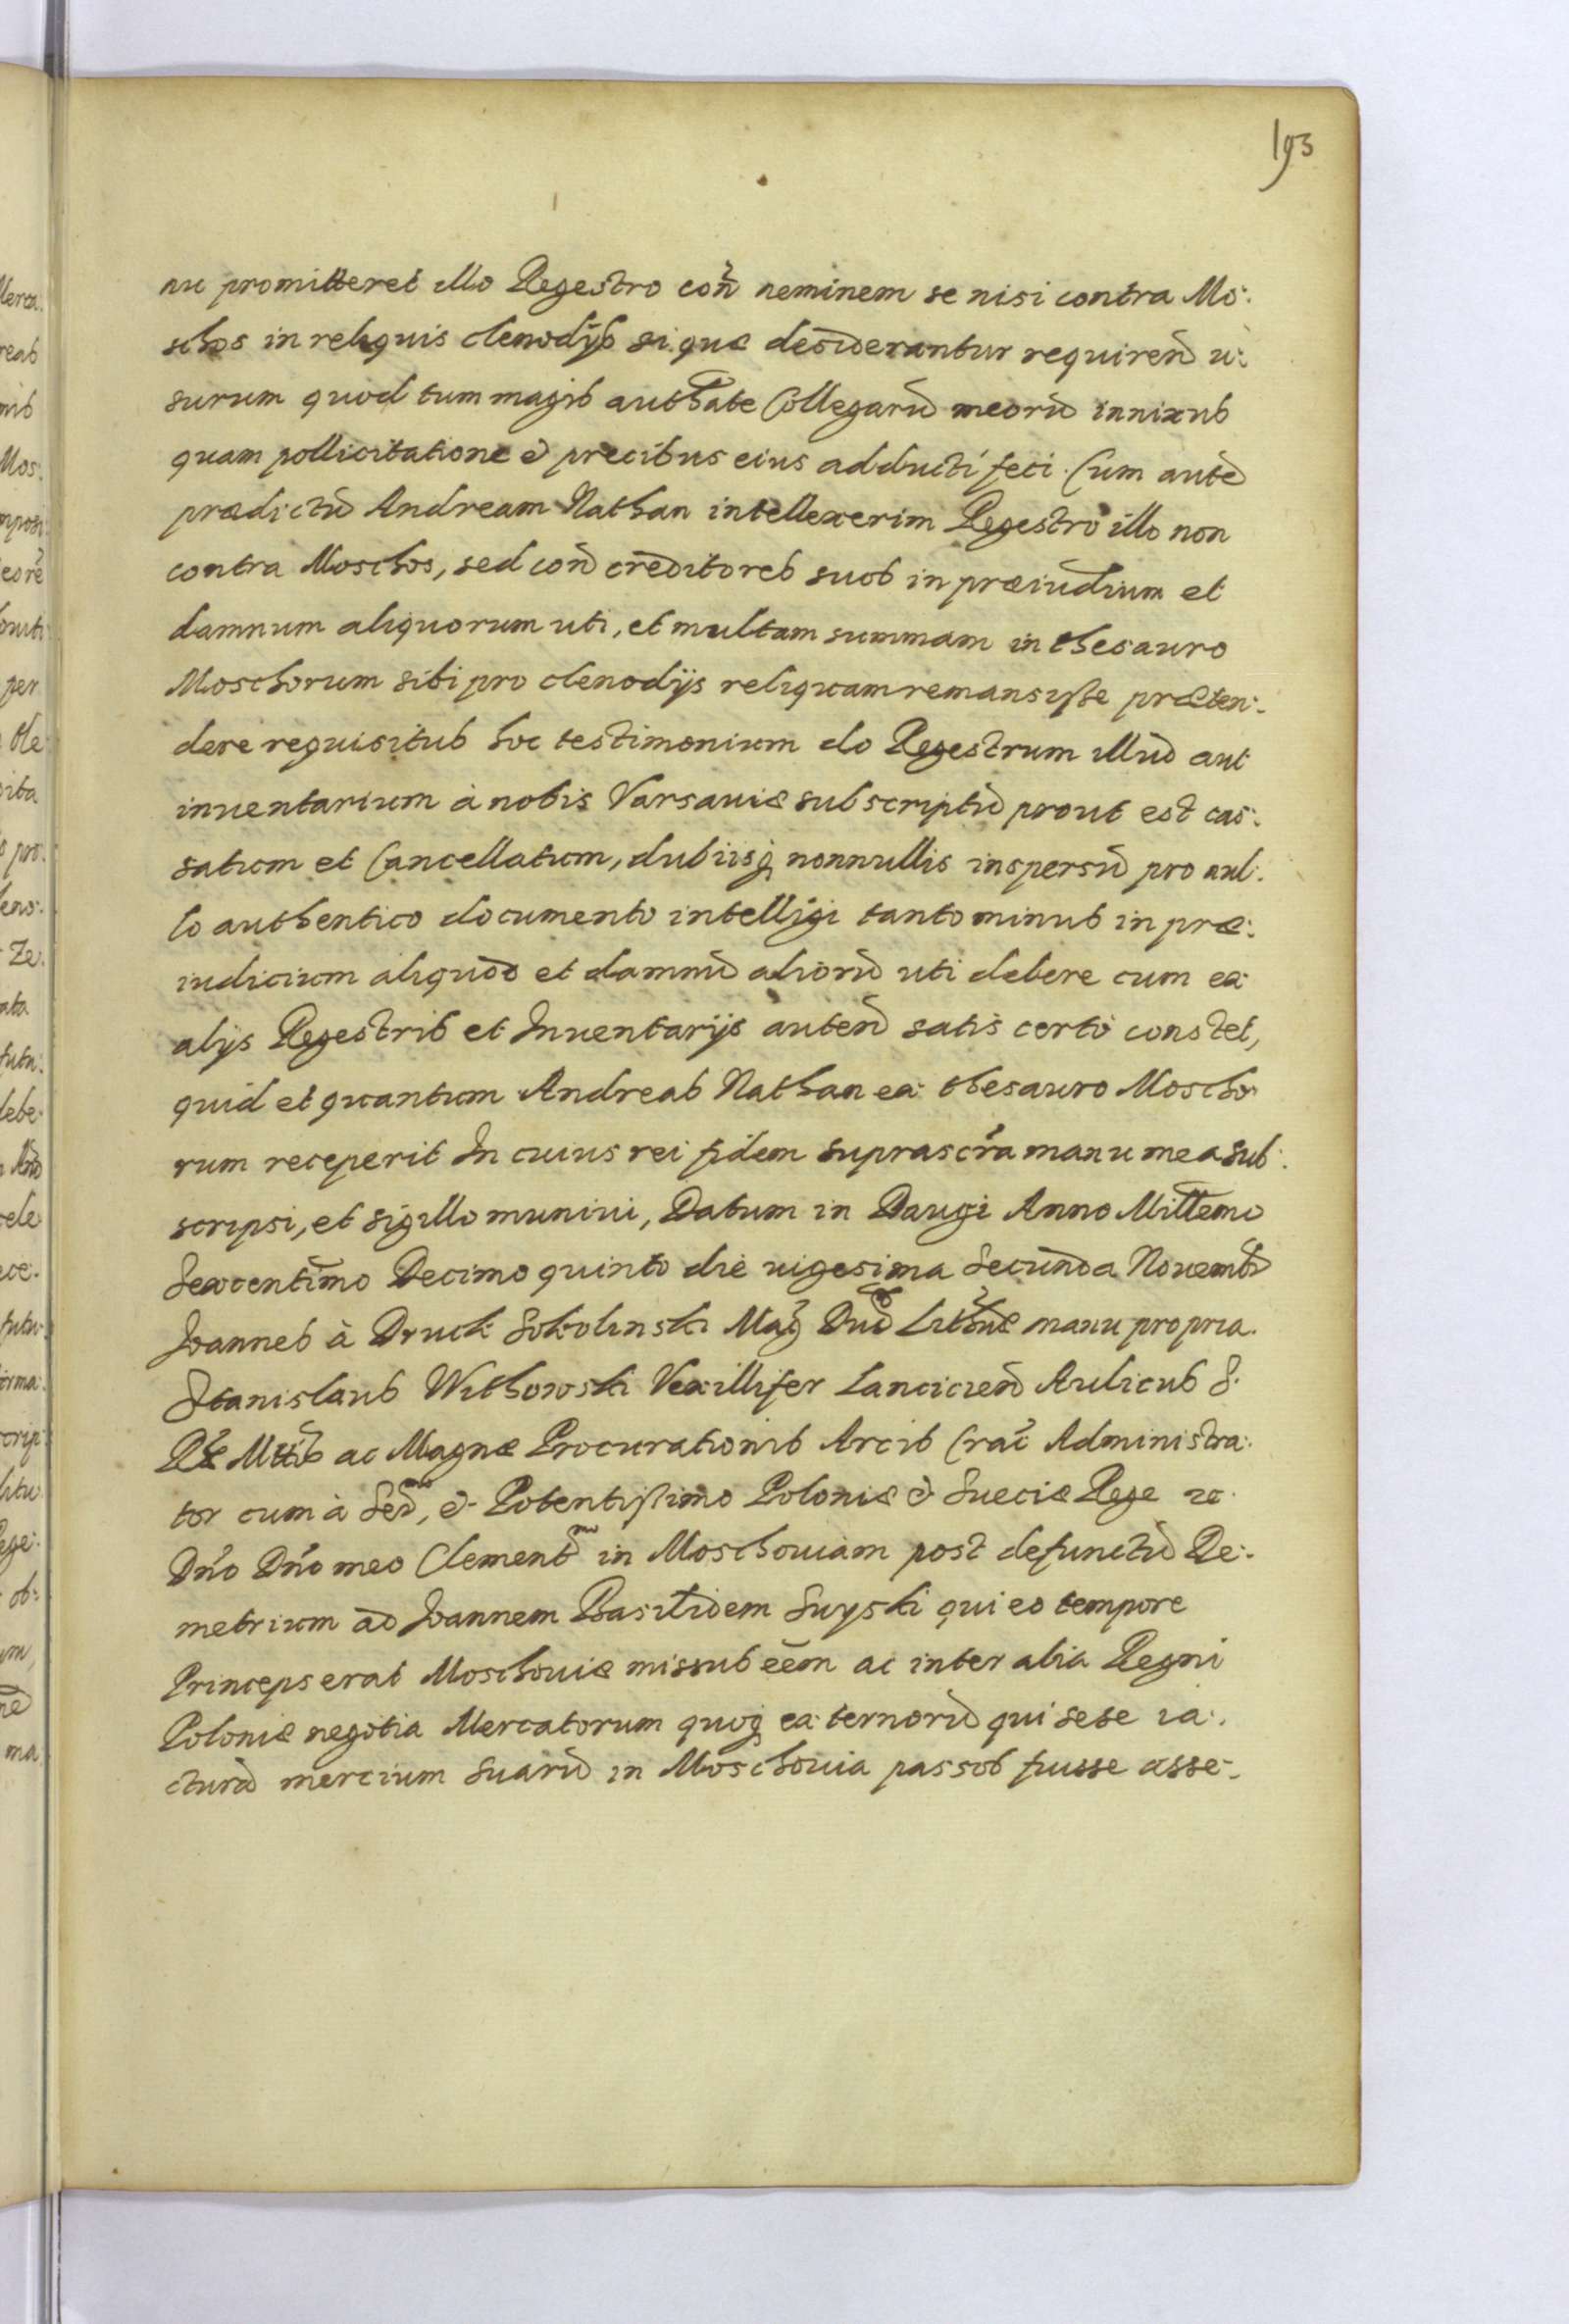 193
nu promitteret illo Regestro coñ neminem se nisi contra Mo:
schos in reliquis clenodijs si quæ desiderantur requirend u:
surum quod tum magis authãte Collegarũ meorũ innixus
quam pollicitatione & precibus eius adducti feci. Cum autẽ
prædictũ Andream Nathan intellexerim Regestro illo non
contra Moschos, sed coñ creditores suos in præiudium et
damnum aliquorum uti, et multam summam in thesauro
Moschorum sibi pro clenodijs reliquam remansisse præten:
dere requisitus hoc testimonium do Regestrum illud aut
inuentarium à nobis Varsauiæ subscriptũ prout est cas:
satum et Cancellatum, dubiisq nonnullis inspersũ pro nul:
lo authentico documento intelligi tanto minus in præ:
iudicium aliquod et damnũ aliorũ uti debere cum ex
alijs Regestris et Inuentarijs auten̄ satis certò constet,
quid et quantum Andreas Nathan ex thesauro Moscho
rum receperit In cuius rei fidem suprascr̃a manu mea sub:
scripsi, et sigillo muniui, Datum in Daugi Anno Millẽmo
Sexcentĩmo Decimo quinto die uigesima Secunda Nouemb
Joannes à Druck Sokolinski Mag Duc Lithuæ manu propria.
Stanislaus Withowski Vexillifer Lanciciend Aulicus S.
Ræ Mttis ac Magnæ Procurationis Arcis Crac Administra:
tor cum à Ser, & Potentissimo Poloniæ & Sueciæ Rege
Dño Dño meo Clement in Moschouiam post defunctũ De:
metrium ad Joannem Basilidem Suyski qui eo tempore
Princeps erat Moschouiæ missus eẽm ac inter alia Regni
Poloniæ negotia Mercatorum quoq externorũ qui sese ia:
cturã mercium suarũ in Moschouia passos fuisse asse: